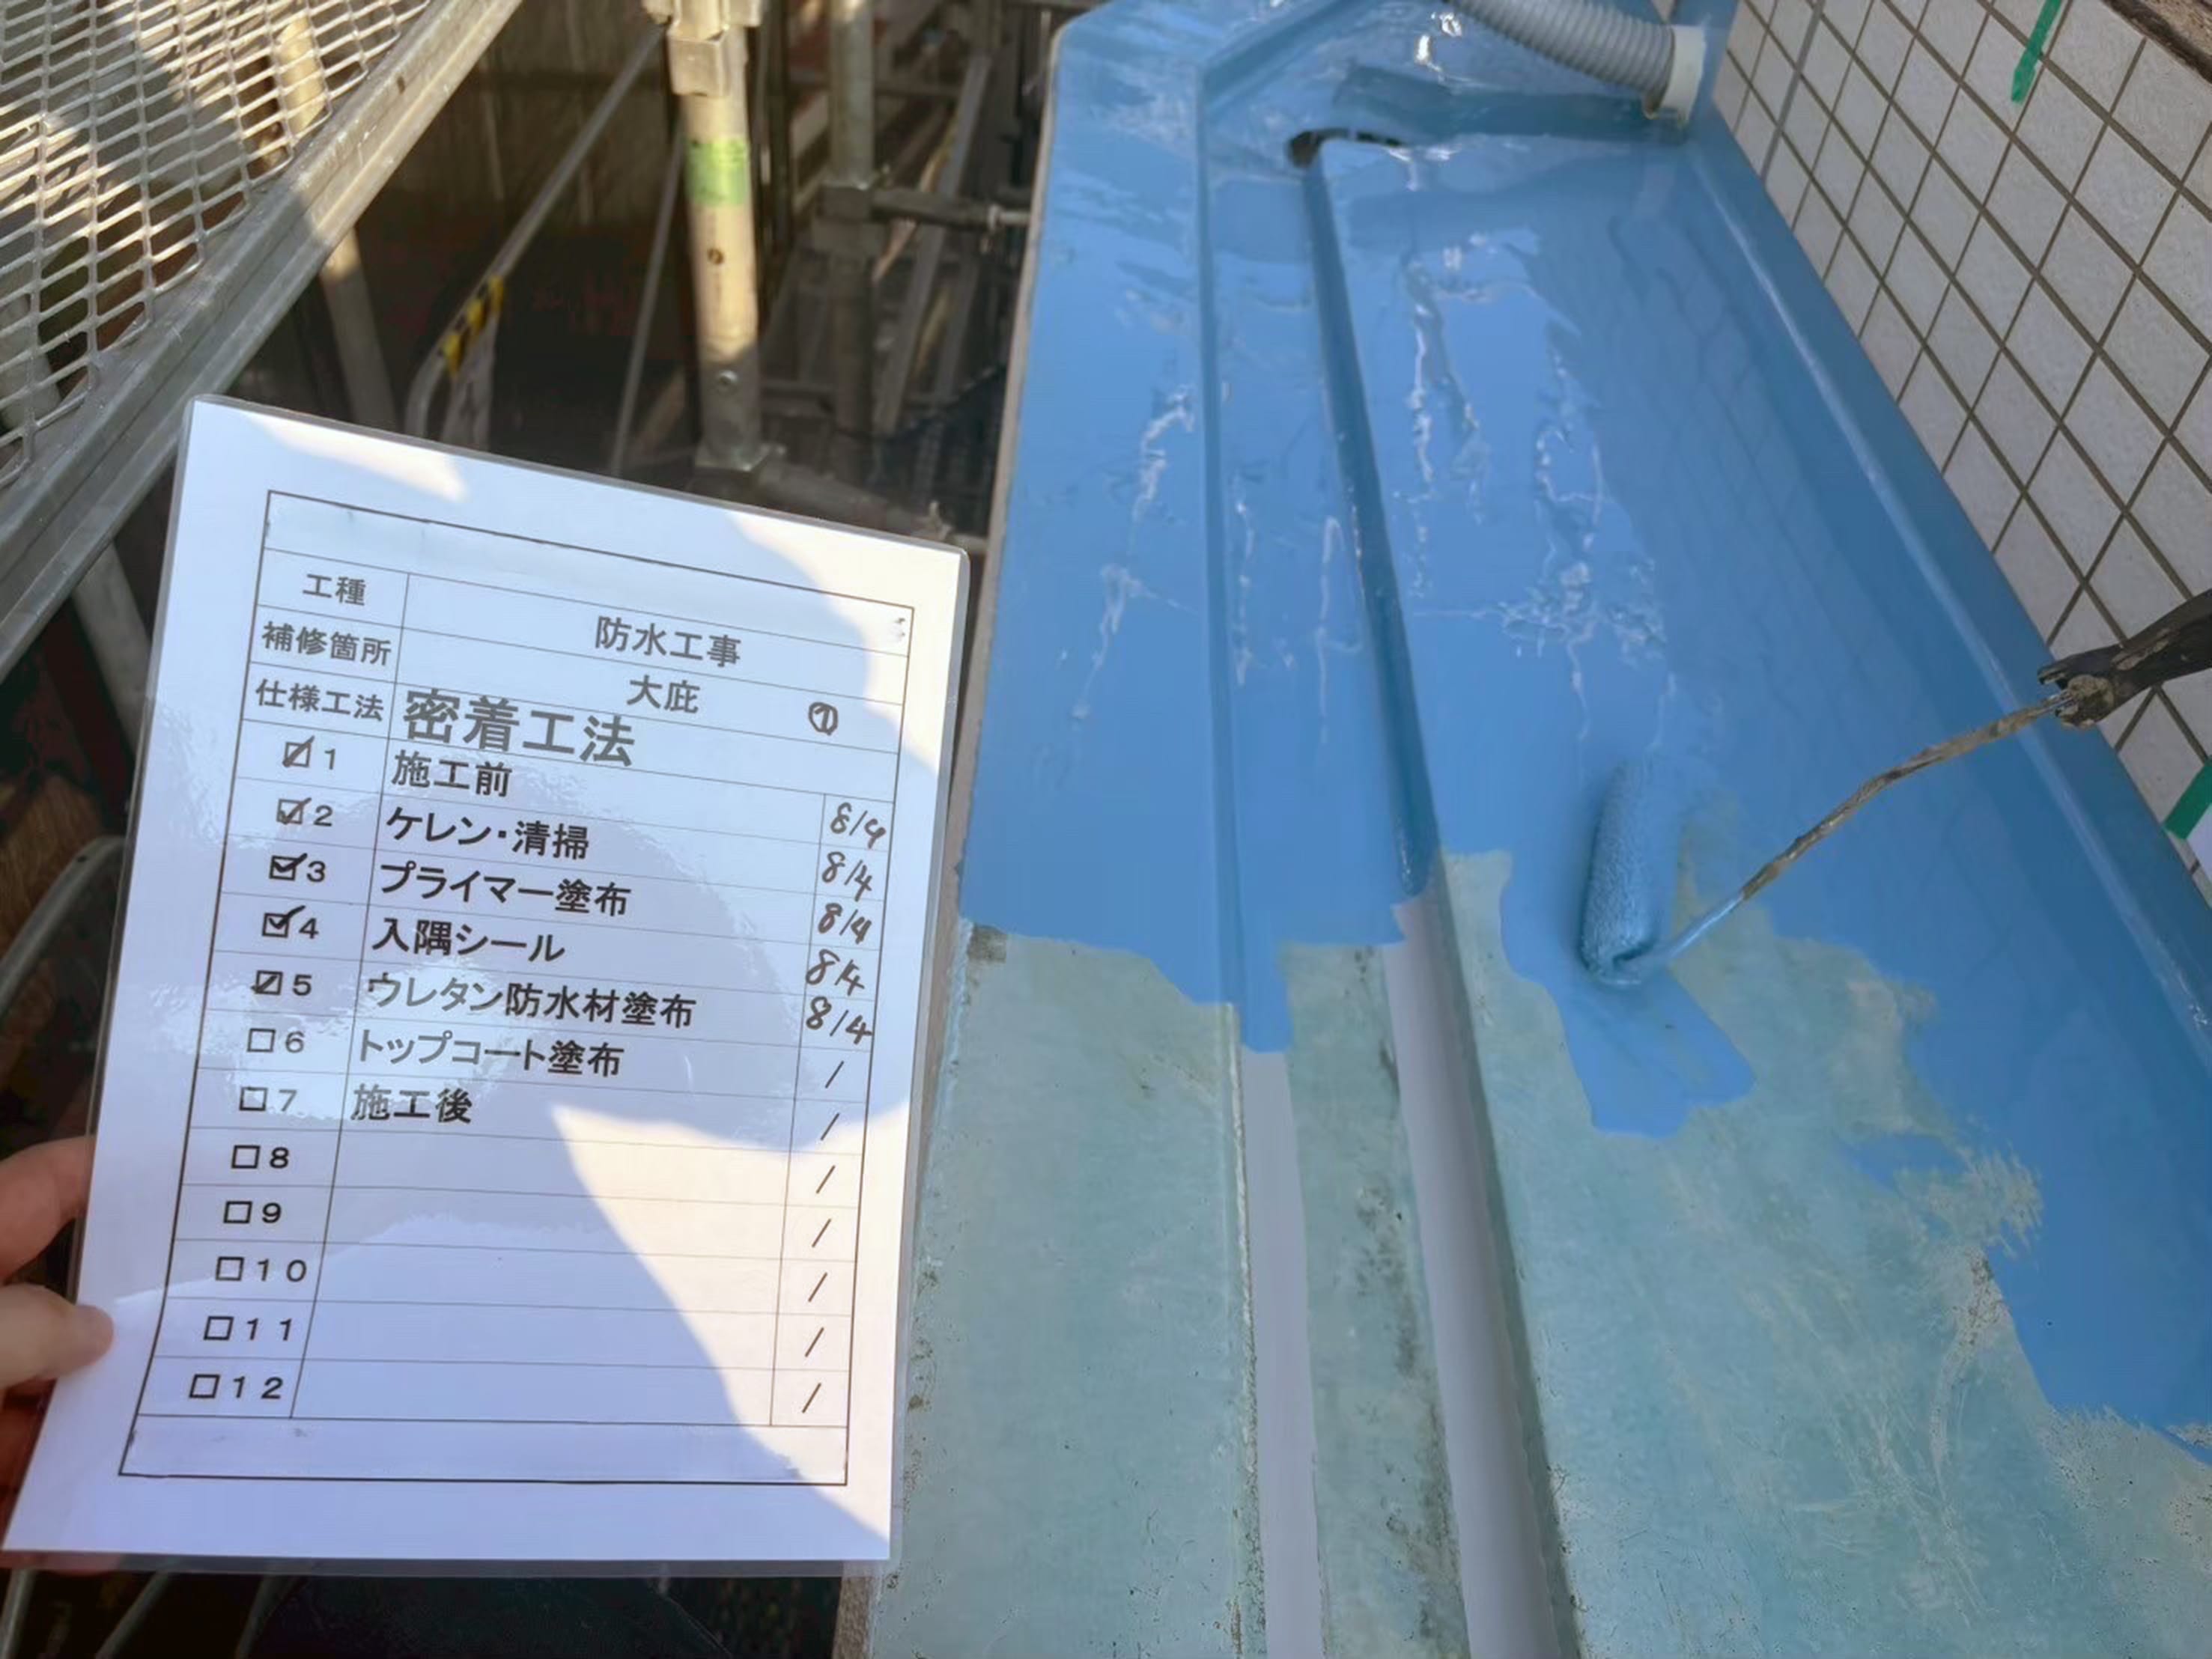 工種 防水工事
補修箇所 大庇 ①
仕様工法 密着工法
☑1 施工前 8/4
☑2 ケレン・清掃 8/4
☑3 プライマー塗布 8/4
☑4 入隅シール 8/4
☑5 ウレタン防水材塗布 8/4
□6 トップコート塗布 /
□7 施工後 /
□8 /
□9 /
□10 /
□11 /
□12 /